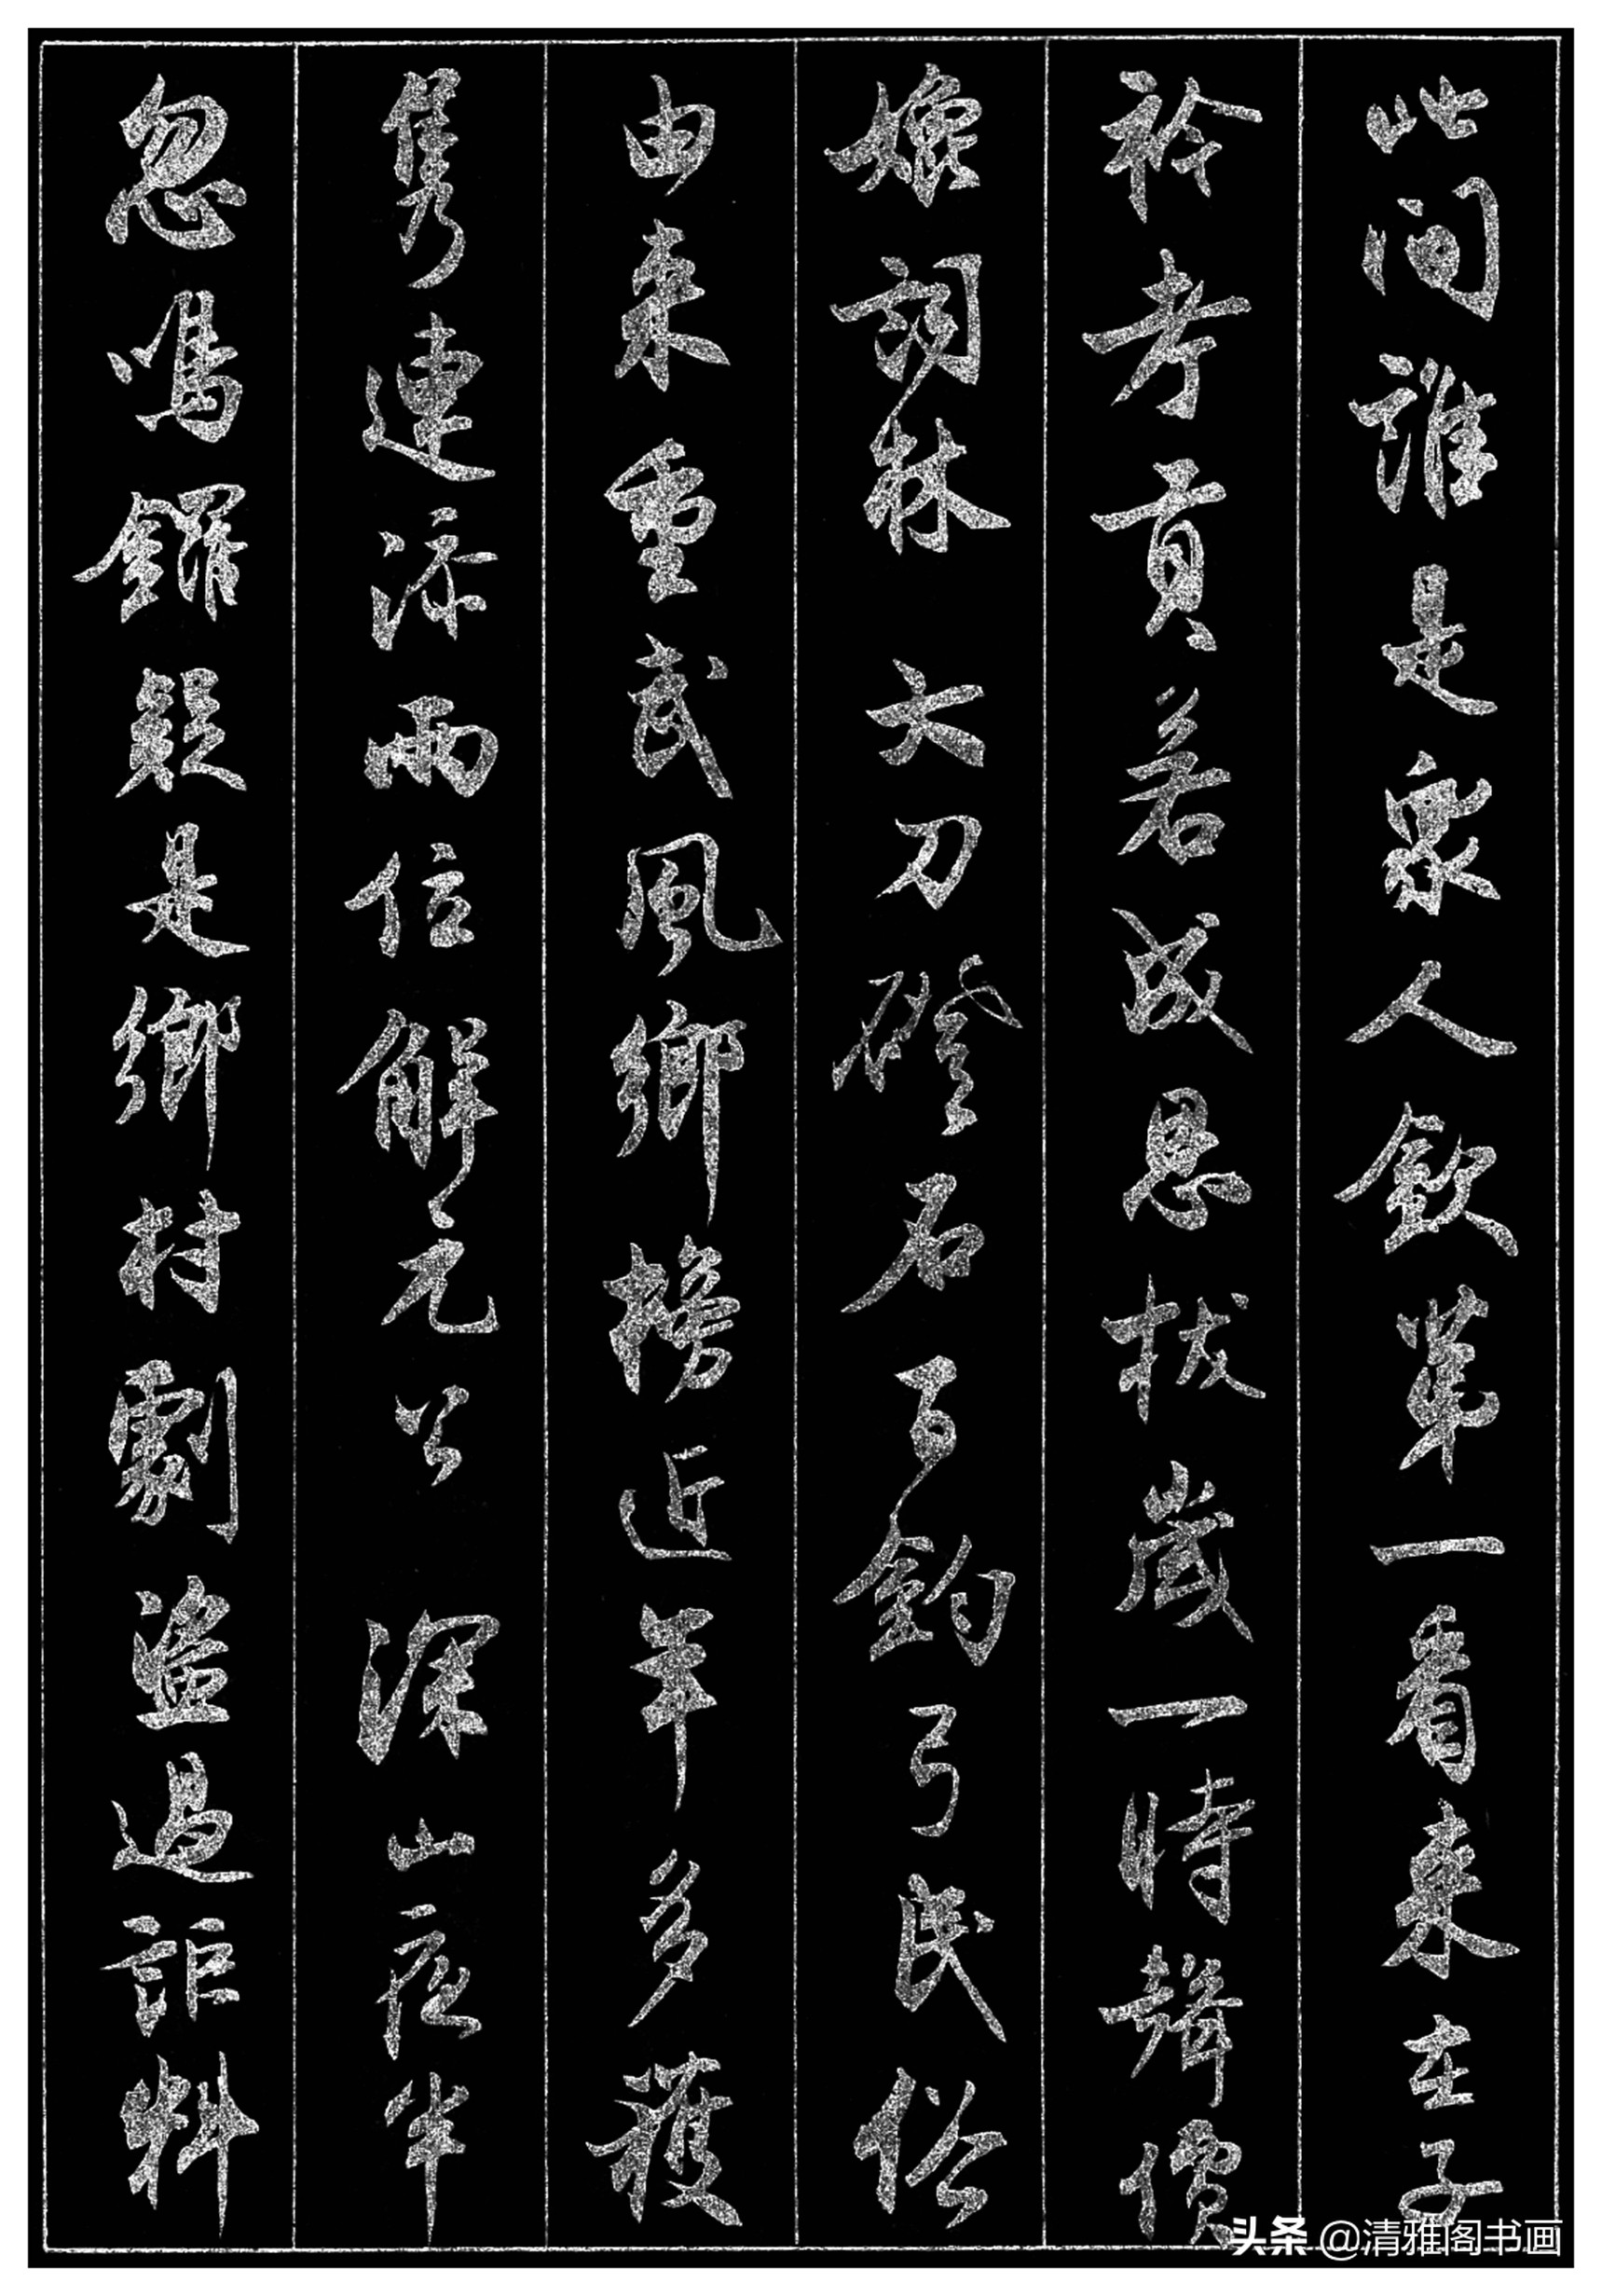 此間誰是眾人欽第一看來在子
衿考貢若成恩拔歲一時聲價
嬾詞林 大刀磴石百鈞弓民俗
由來重武風鄉榜近年多獲
雋連添兩位解元公 深山夜半
忽鳴鑼疑是鄉村劇盜過詎料
头条 @清雅阁书画